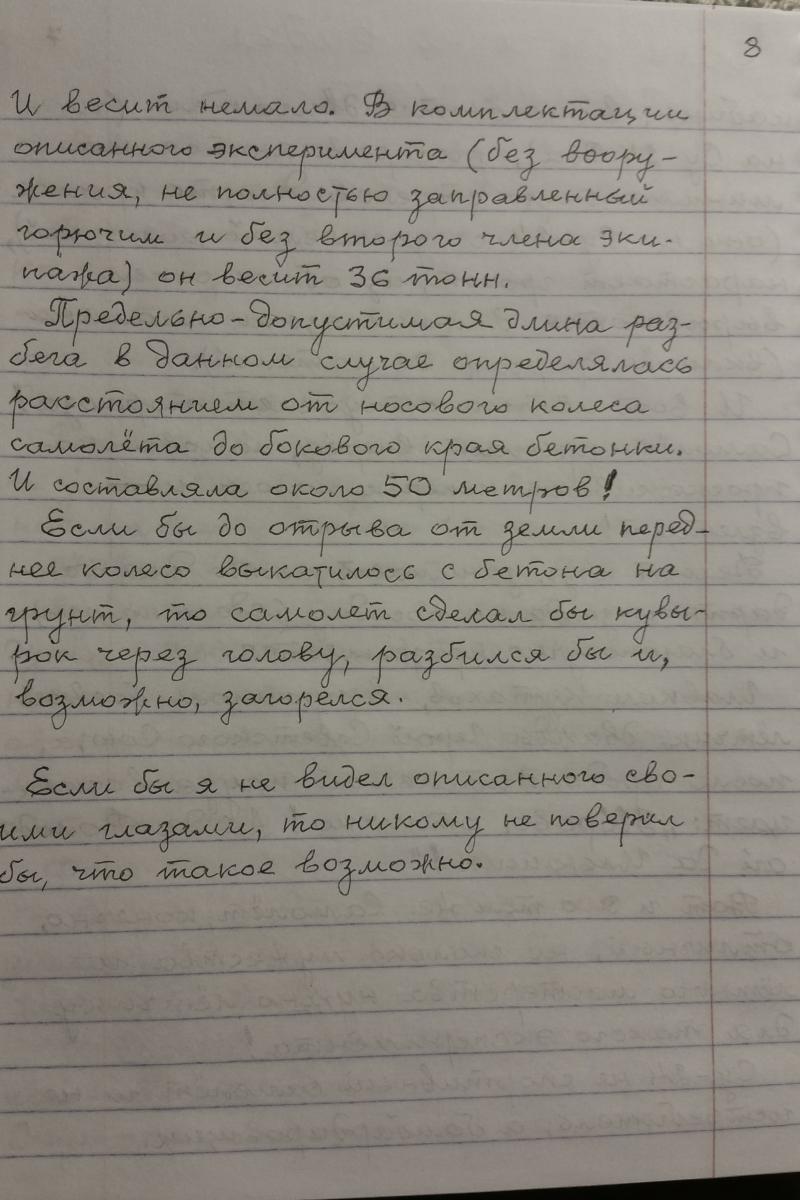 8
И весит немало. В комплектации
описанного эксперимента (без воору-
жения, не полностью заправленный
горючим и без второго члена эки-
пажа) он весит 36 тонн.
Предельно-допустимая длина раз-
бега в данном случае определялась
расстоянием от носового колеса
самолёта до бокового края бетонки.
И составляла около 50 метров!
Если бы до отрыва от земли перед-
нее колесо выкатилось с бетона на
грунт, то самолет сделал бы кувы-
рок через голову, разбился бы и,
возможно, загорелся.
Если бы я не видел описанного сво-
ими глазами, то никому не поверил
бы, что такое возможно.